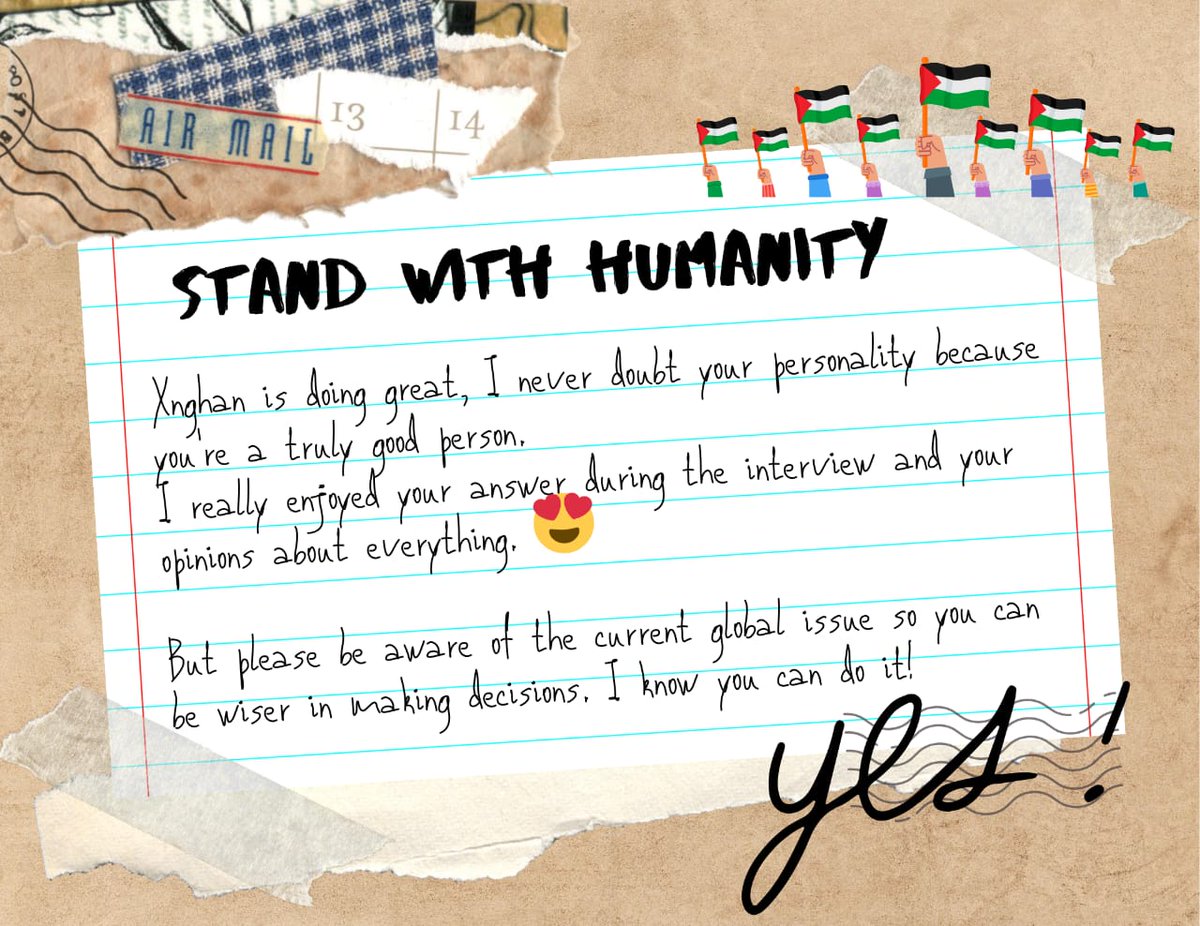 AIR MAIL
13 14
STAND WITH HUMANITY
Xnghan is doing great, I never doubt your personality because
you're a truly good person.
I really enjoyed your answer during the interview and your
opinions about everything.
But please be aware of the current global issue so you can
be wiser in making decisions. I know you can do it!
yes!